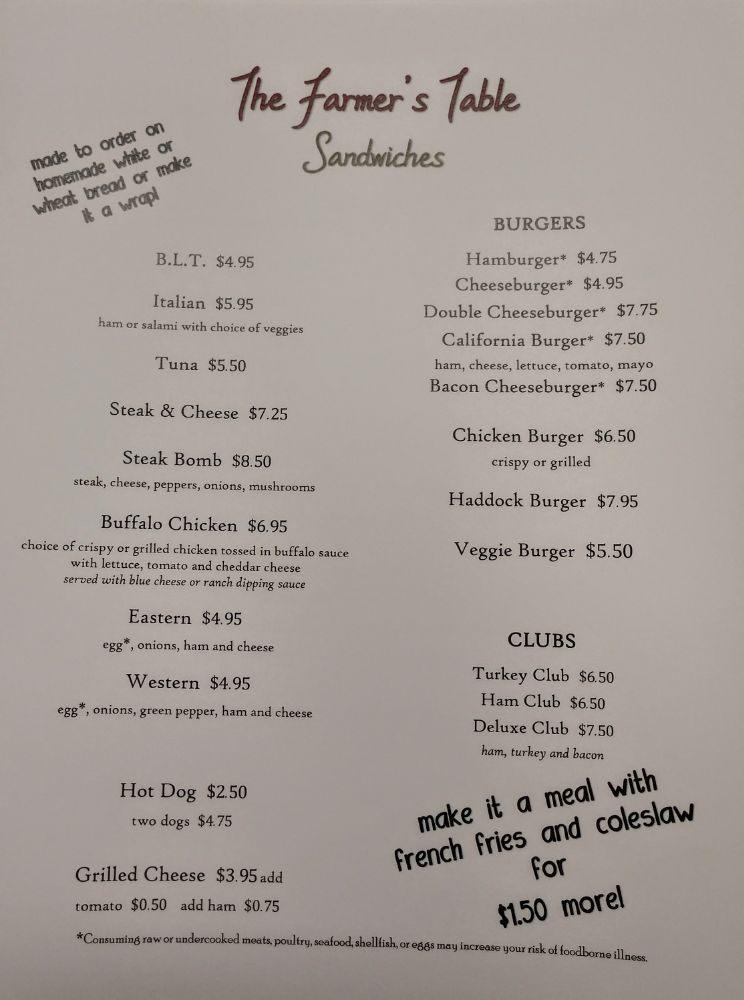 The Farmer's Table
Sandwiches
made to order on
homemade white or
wheat bread or make
it a wrap!
B.L.T. $4.95
Italian $5.95
ham or salami with choice of veggies
Tuna $5.50
Steak & Cheese $7.25
Steak Bomb $8.50
steak, cheese, peppers, onions, mushrooms
Buffalo Chicken $6.95
choice of crispy or grilled chicken tossed in buffalo sauce
with lettuce, tomato and cheddar cheese
served with blue cheese or ranch dipping sauce
Eastern $4.95
egg*, onions, ham and cheese
Western $4.95
egg*, onions, green pepper, ham and cheese
Hot Dog $2.50
two dogs $4.75
Grilled Cheese $3.95 add
tomato $0.50 add ham $0.75
BURGERS
Hamburger* $4.75
Cheeseburger* $4.95
Double Cheeseburger* $7.75
California Burger* $7.50
ham, cheese, lettuce, tomato, mayo
Bacon Cheeseburger* $7.50
Chicken Burger $6.50
crispy or grilled
Haddock Burger $7.95
Veggie Burger $5.50
CLUBS
Turkey Club $6.50
Ham Club $6.50
Deluxe Club $7.50
ham, turkey and bacon
make it a meal with
french fries and coleslaw
for
$1.50 more!
*Consuming raw or undercooked meats, poultry, seafood, shellfish, or eggs may increase your risk of foodborne illness.